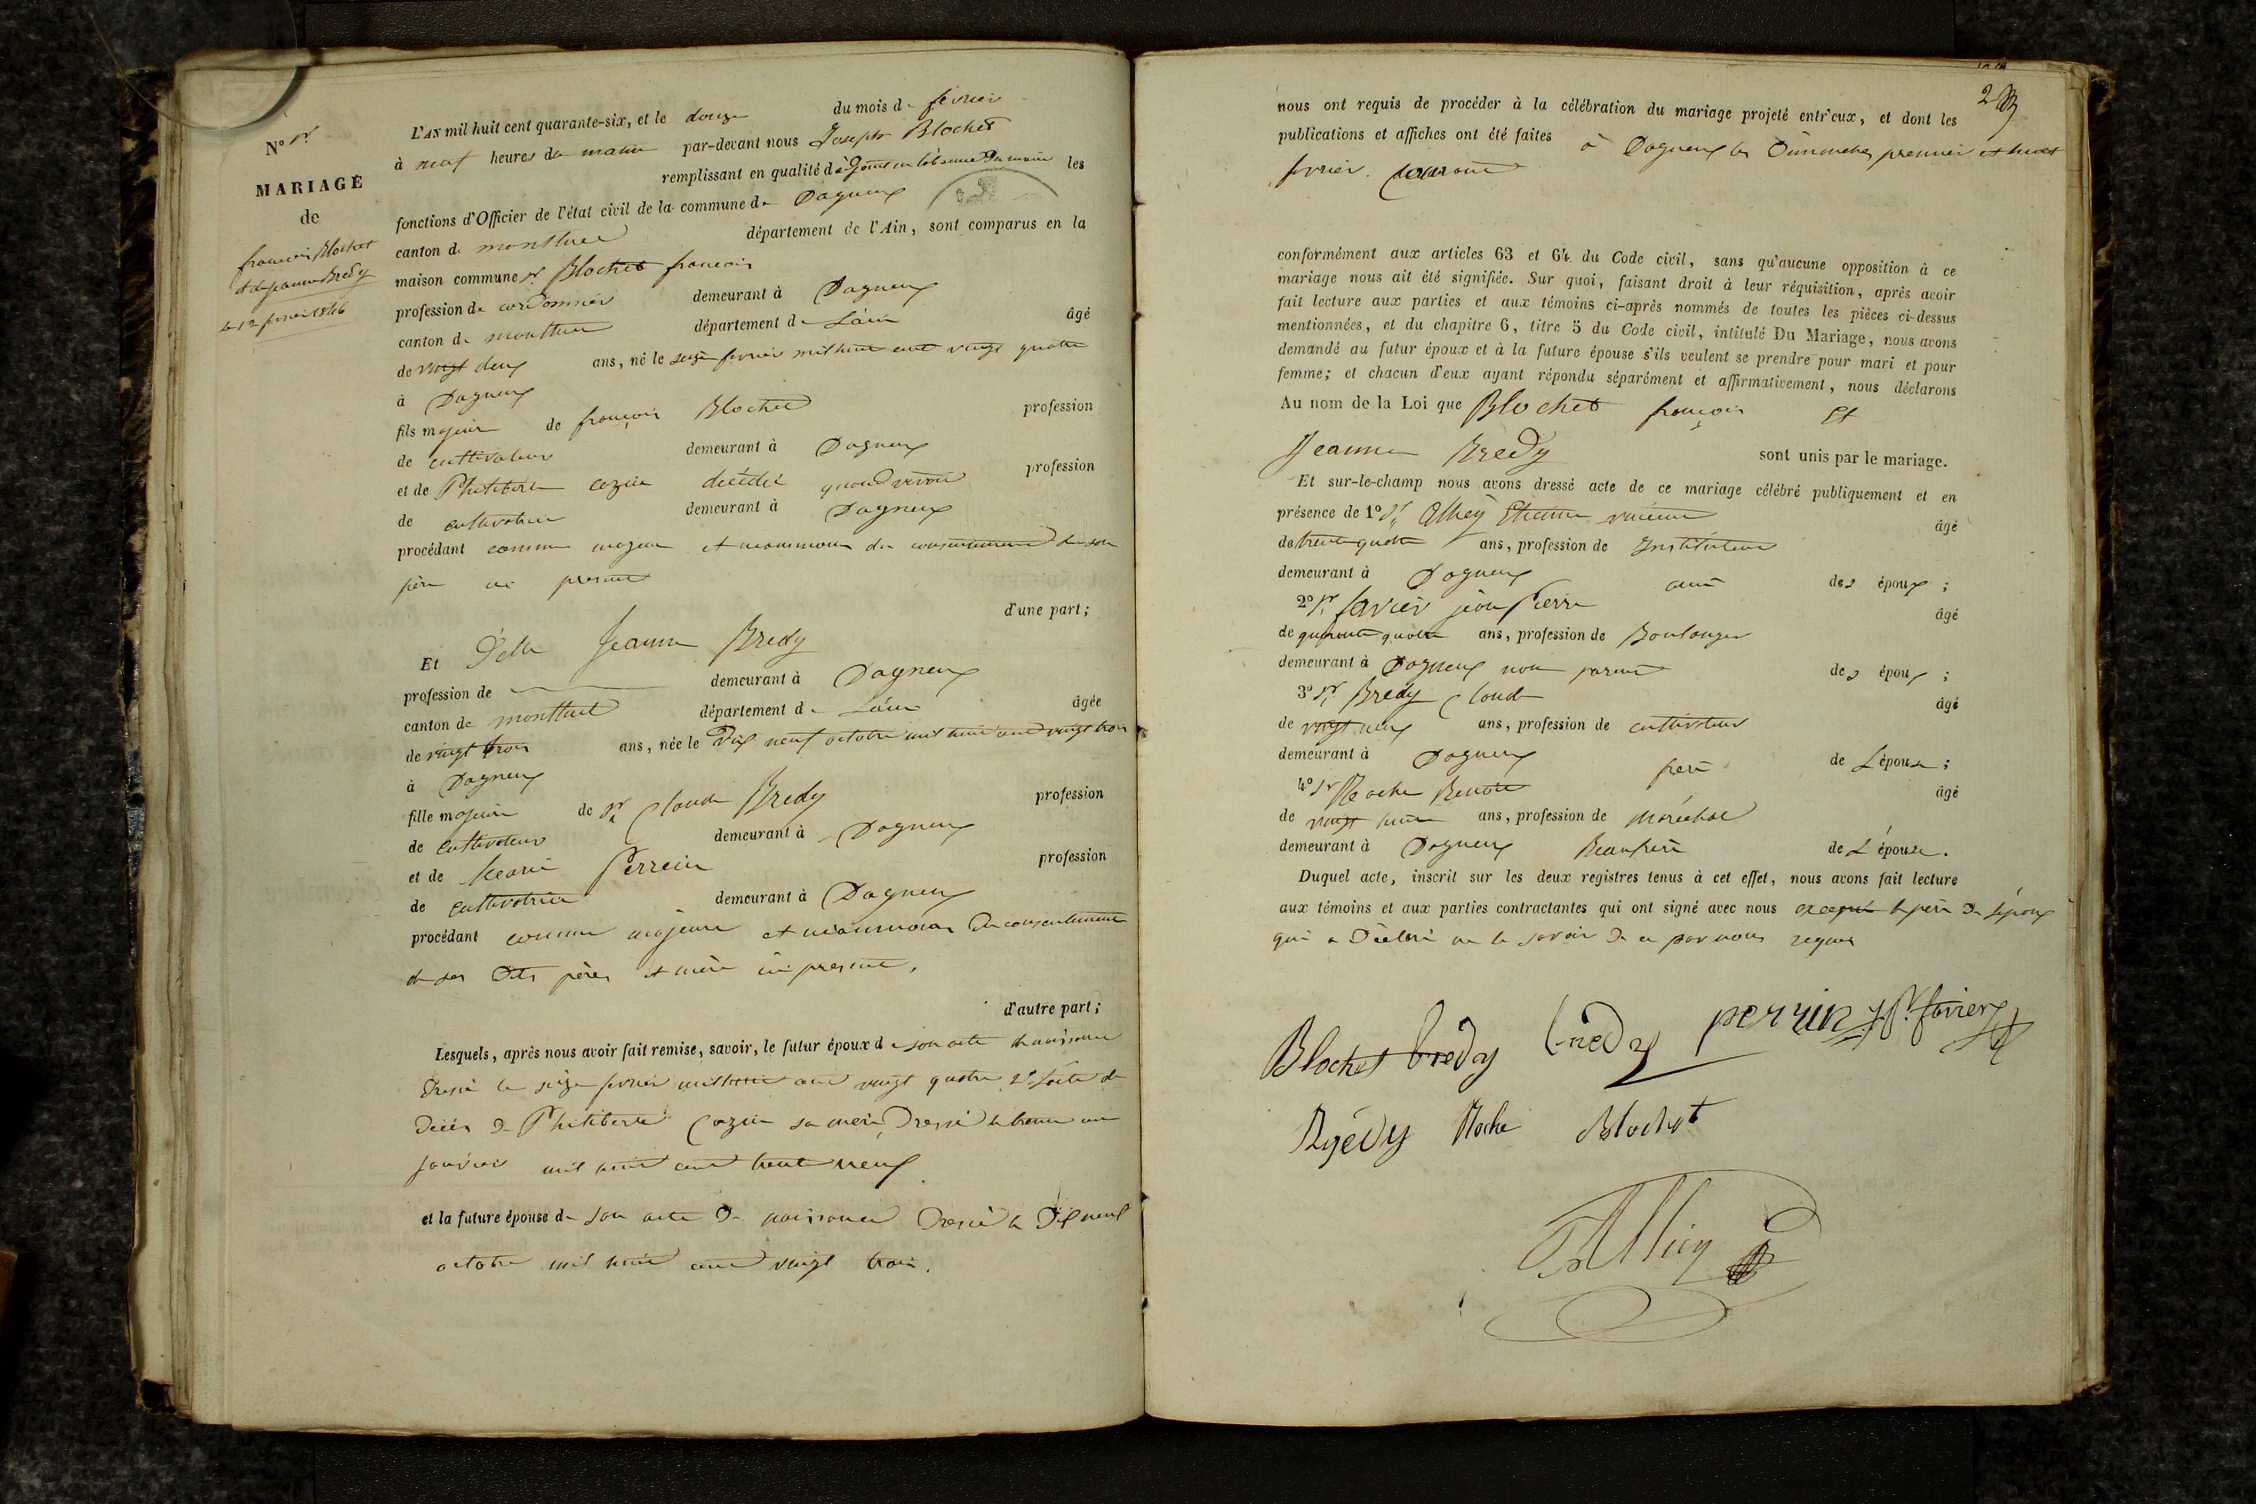 N° 1r
MARIAGE
de
françois Blochet
et de jeanne Bredy
le 12 février 1846
L'AN mil huit cent quarante-six, et le douze du mois de février
à neuf heures du matin par-devant nous Joseph Blochet
remplissant en qualité d'adjoint en l'absence du maire les
fonctions d'Officier de l'état civil de la commune de Dagneux
canton de montluel département de l'Ain, sont comparus en la
maison commune sr. Blochet françois
profession de cordonnier demeurant à Dagneux
canton de montluel département de L'ain âgé
de vingt deux ans, né le seize février mil huit cent vingt quatre
à Dagneux
fils majeur de françois Blochet profession
de cultivateur demeurant à Dagneux
et de Philiberte cozin décédée quand vivait profession
de cultivatrice demeurant à Dagneux
procédant comme majeur et néanmoins du consentement de son
père ici présent
d'une part;
Et Delle Jeanne Bredy
profession de demeurant à Dagneux
canton de montluel département de L'ain âgée
de vingt trois ans, née le dix neuf octobre mil huit cent vingt trois
à Dagneux
fille majeure de sr Claude Bredy profession
de cultivateur demeurant à Dagneux
et de Marie Perrein profession
de cultivatrice demeurant à Dagneux
procédant comme majeure et néanmoins du consentement
de ses dits pères et mère ici présent.
d'autre part;
Lesquels, après nous avoir fait remise, savoir, le futur époux de son acte de naissance
dressé le seize février mil huit cent vingt quatre 2° l'acte de
décès de Philiberte Cozin sa mère, dressé le trente un
janvier mil huit cent trente neuf
et la future épouse de son acte de naissance dressé le dix neuf
octobre mil huit cent vingt trois.
2
nous ont requis de procéder à la célébration du mariage projeté entr'eux, et dont les
publications et affiches ont été faites à Dagneux les Dimanches premier et huit
février courant
conformément aux articles 63 et 64 du Code civil, sans qu'aucune opposition à ce
mariage nous ait été signifiée. Sur quoi, faisant droit à leur réquisition, après avoir
fait lecture aux parties et aux témoins ci-après nommés de toutes les pièces ci-dessus
mentionnées, et du chapitre 6, titre 5 du Code civil, intitulé Du Mariage, nous avons
demandé au futur époux et à la future épouse s'ils veulent se prendre pour mari et pour
femme; et chacun d'eux ayant répondu séparément et affirmativement, nous déclarons
Au nom de la Loi que Blochet françois Et
Jeanne Bredy sont unis par le mariage.
Et sur-le-champ nous avons dressé acte de ce mariage célébré publiquement et en
présence de 1° sr Etienne âgé
de trente quatre ans, profession de Instituteur
demeurant à Dagneux ami des époux;
2° sr favier jean Pierre âgé
de quarante quatre ans, profession de Boulanger
demeurant à Dagneux non parent des époux;
3° sr Bredy Claude âgé
de vingt neuf ans, profession de cultivateur
demeurant à Dagneux frère de L'épouse;
4° sr Roche Benoit âgé
de vingt ans, profession de Maréchal
demeurant à Dagneux Beaufrère de L'épouse.
Duquel acte, inscrit sur les deux registres tenus à cet effet, nous avons fait lecture
aux témoins et aux parties contractantes qui ont signé avec nous excepté le père de l'époux
qui a déclaré ne le savoir de ce par nous requis
Blochet bredy bredy perrin JP. favier
Brédy Roche Blochet